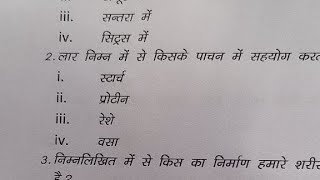 iii. सन्तरा में
iv. सिट्रस में
2. लार निम्न में से किसके पाचन में सहयोग
i. स्टार्च
ii. प्रोटीन
iii. रेशे
iv. वसा
3. निम्नलिखित में से किस का निर्माण हमारे
है ?